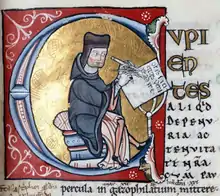 CUPI
EN
TES
ALIQID
DEPENV
RIA AC
TENVITA
TE NRA
CVM PAV
percula in gazophilatium mittere